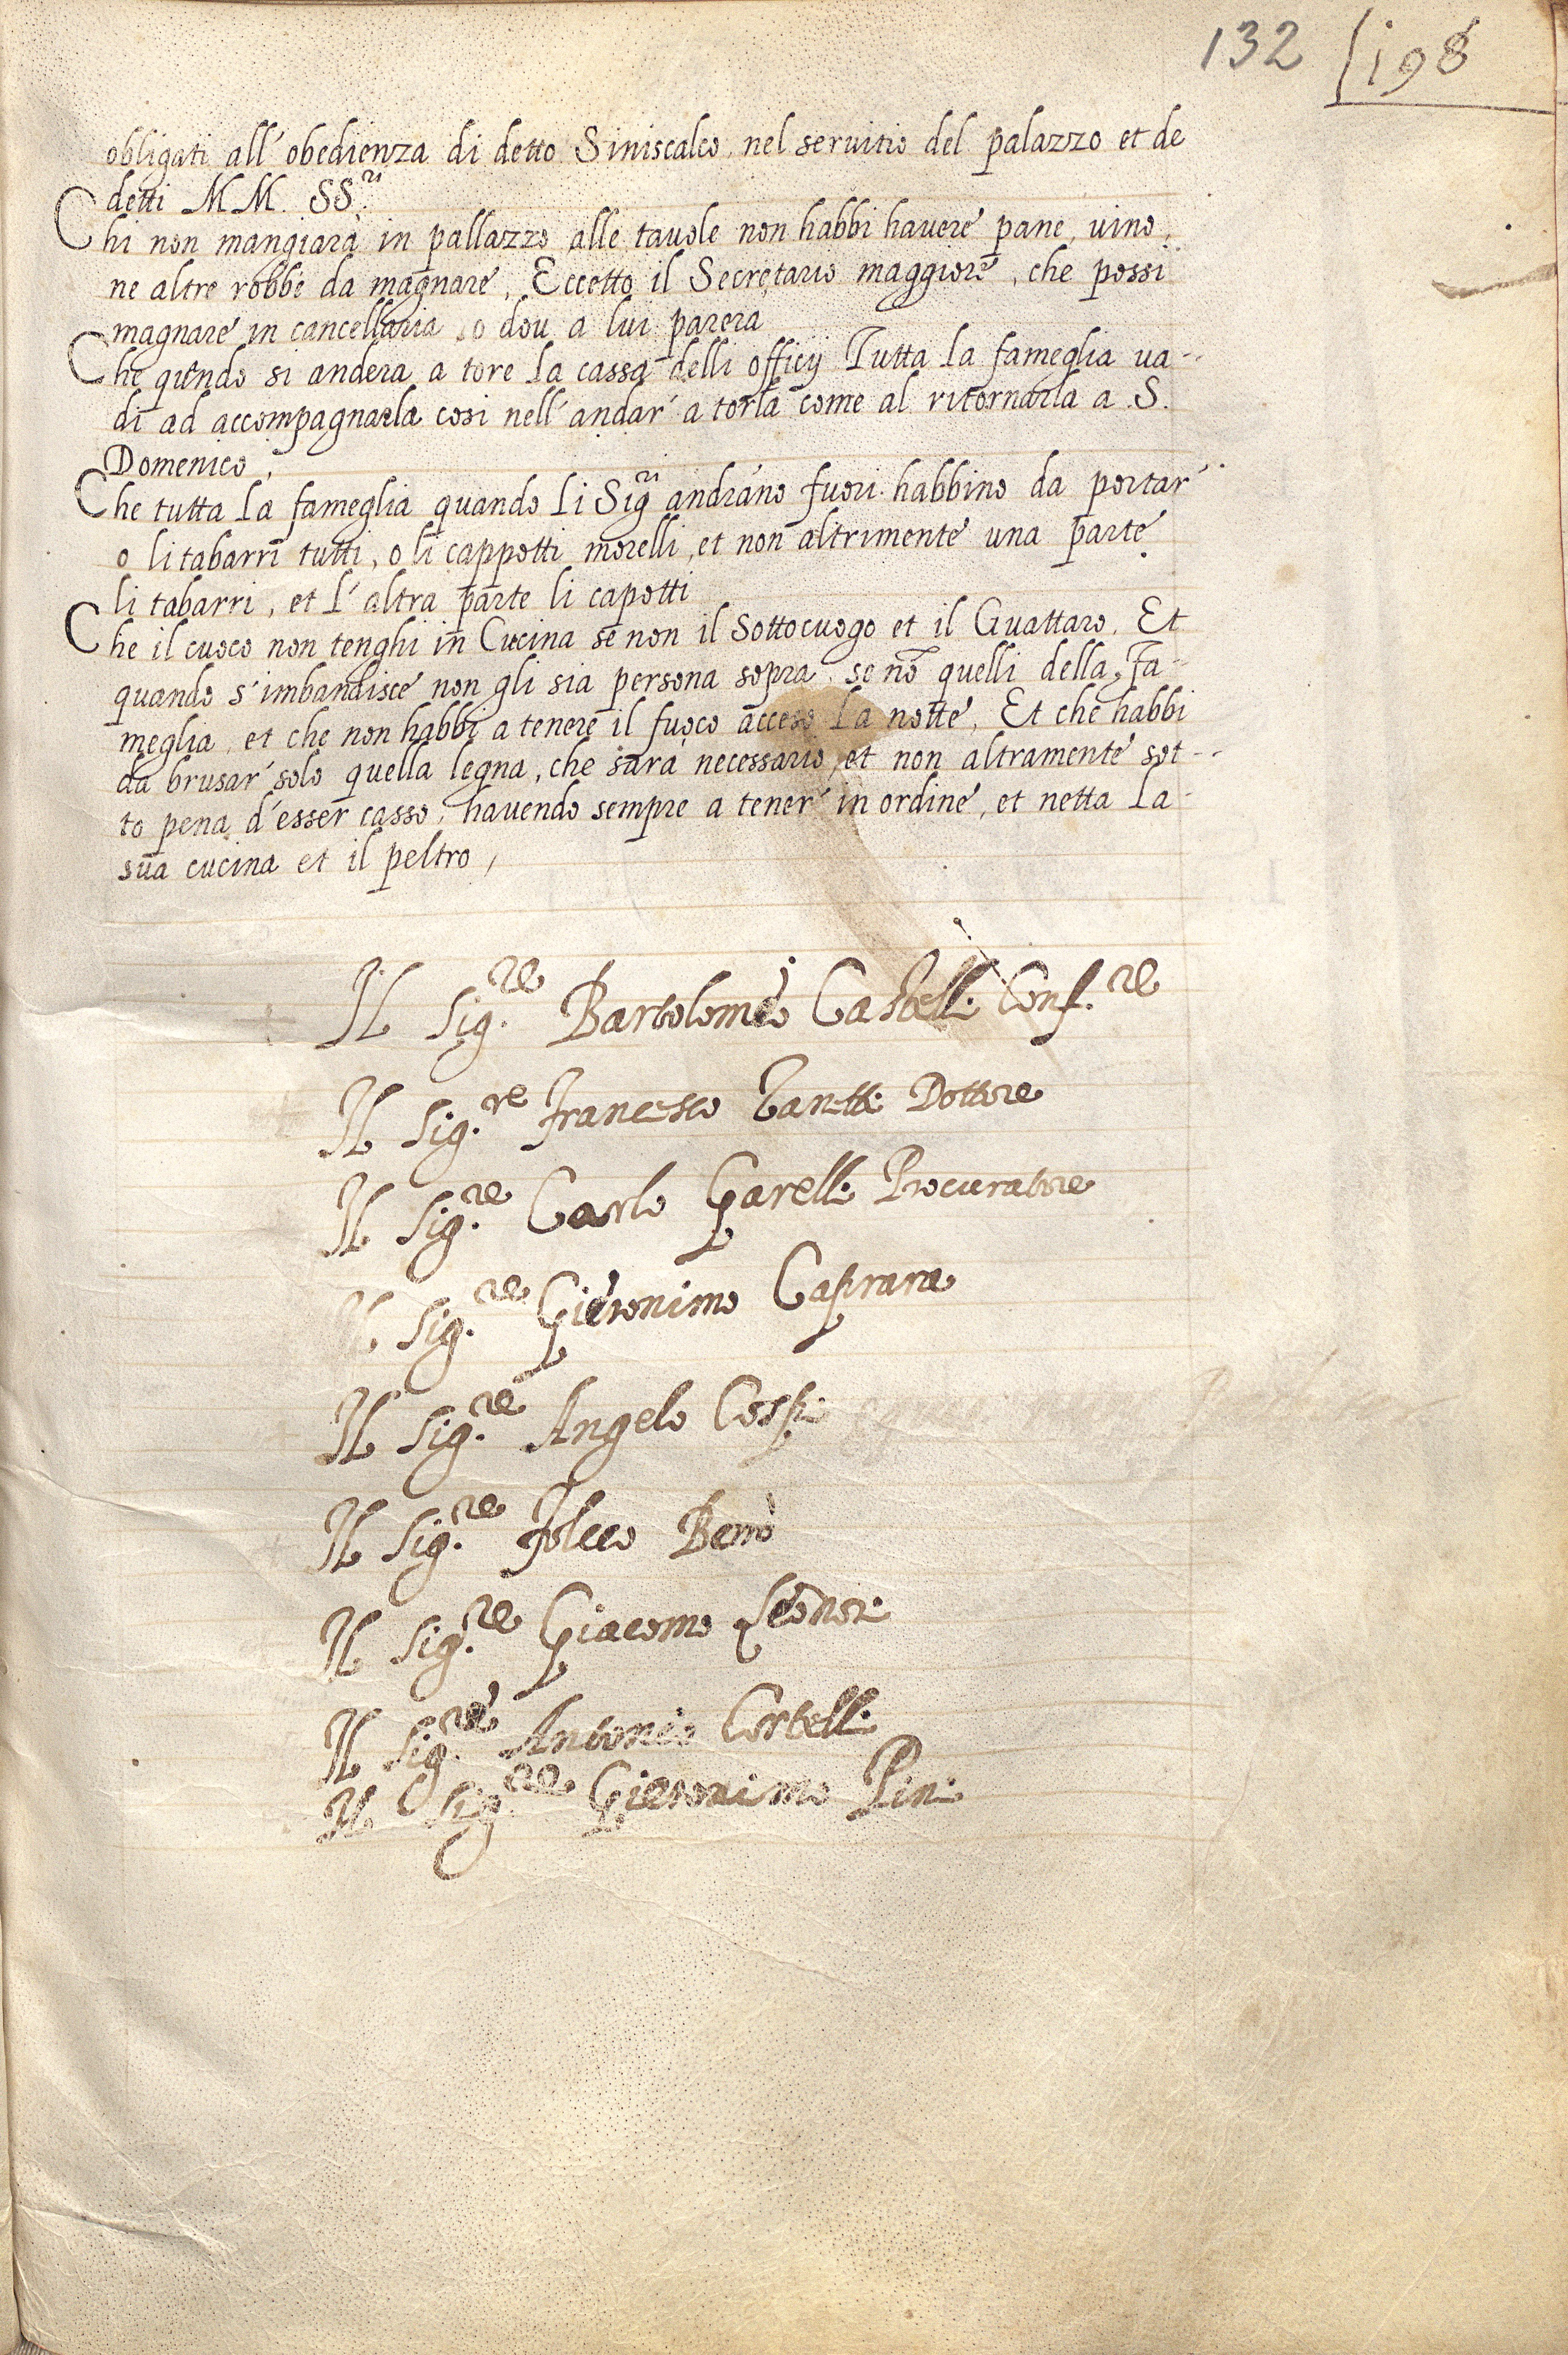 132 198
obligati all' obedienza di detto Siniscalco, nel seruitio del palazzo et de
detti MM. SS.ri
Chi non mangiarà in pallazzo alle tauole non habbi hauere pane, uino,
ne altre robbe da magnare, Eccetto il Secretario maggiore, che possi
magnare in cancellaria o dou a lui parera
Che quando si andera a tore la cassa delli officij Tutta la fameglia ua-
di ad accompagnarla cosi nell' andar' a torla come al ritornarla a S.
Domenico,
Che tutta la fameglia quando li Sig.ri andràno fuori habbino da portar'
o li tabarri tutti, o li cappotti morelli, et non altrimente una parte
li tabarri, et l' altra parte li capotti
Che il cuoco non tenghi in Cucina se non il Sottocuogo et il Guattaro. Et
quando s' imbandisce non gli sia persona sopra, se nō quelli della Fa-
meglia, et che non habbi a tenere il fuoco acceso la notte, Et che habbi
da brusar' solo quella legna, che sarà necessario, et non altramente sot-
to pena d' esser casso, hauendo sempre a tener' in ordine, et netta la
sua cucina et il peltro,
Il Sig.re Bartolomeo Castelli Conf.re
Il Sig.re Francesco Zanetti Dottore
Il Sig.re Carlo Garelli Procuratore
Il Sig.re Gieronimo Caprara
Il Sig.re Angelo Cospi
Il Sig.re Folceo Berrò
Il Sig.re Giacomo Leonori
Il Sig.re Antonio Cortelli
Il Sig.re Gieronimo Pini